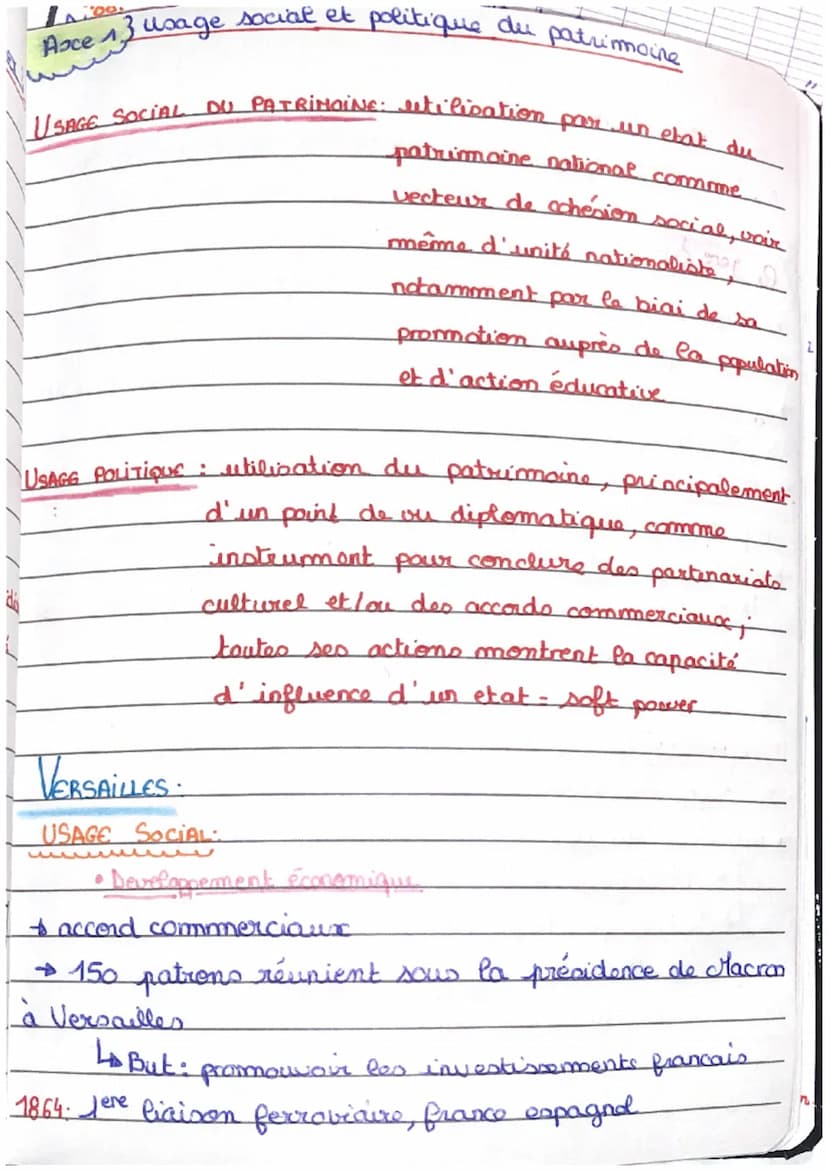 Axe 1 3 usage social et politique du patrimoine
USAGE SOCIAL DU PATRIMOINE: utilisation par un etat du
patrimoine national comme
vecteur de cohésion social, voir
même d'unité nationaliste,
notamment par le biai de sa
promotion auprès de la population
et d'action éducative
USAGE POLITIQUE : utilisation du patrimoine, principalement
d'un point de vu diplomatique, comme
instrument pour conclure des partenariats
culturel et/ou des accords commerciaux;
toutes ses actions montrent la capacité
d'influence d'un etat = soft power
VERSAILLES:
USAGE SOCIAL:
• Developpement économique
→ accord commerciaux
→ 150 patrons réunient sous la présidence de Macron
à Versailles
↳ But: promouvoir les investissements francais
1864: 1ere liaison ferroviaire, franco espagnol